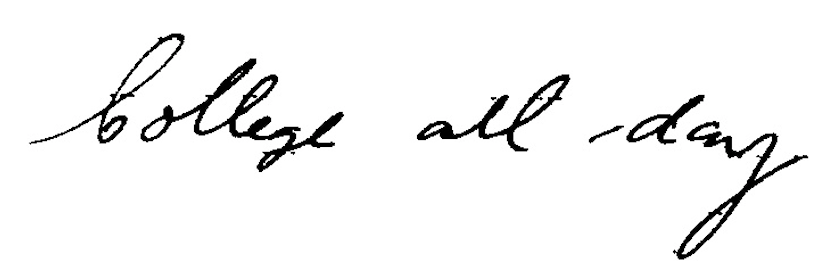 College all day